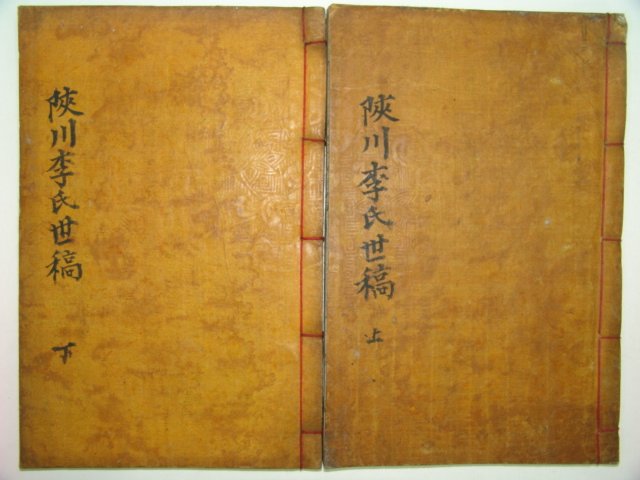 陜川李氏世稿
上
陜川李氏世稿
下